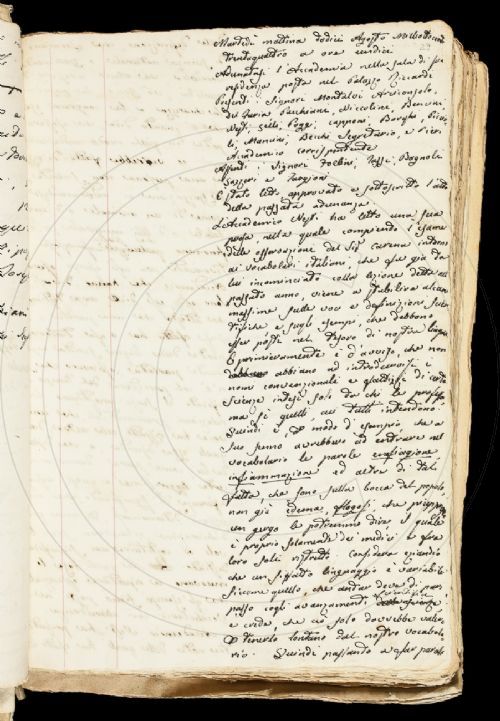 Martedì mattina dodici Agosto milleottocento
trentaquattro a ore undici
Adunatasi l'Accademia nella sala di sua
residenza posta nel Palazzo Riccardi
Presenti: Signori Montalvi Arciconsolo,
Del Furia Niccolini, Bencini,
Nesti, Zelli, Poggi, Capponi, Borghi,
Mancini, Becchi Segretario, e Pieri
Accademico corrispondente
Assenti Signori Follini, Rossi, Bagnoli
Gazzeri e Targioni
È stato letto approvato e sottoscritto l'atto
della passata adunanza.
L'Accademico Nesti ha letto una sua
prosa, nella quale compiendo l'esame
delle osservazioni del Sig. Carena intorno
ai vocabolari italiani, che fu già da
lui incominciato colla lezione detta nel
passato anno, viene a stabilire alcune
massime sulle voci e definizioni scien
tifiche e sugli esempi, che debbono
esser posti nel Tesoro di nostra lingua
E primieramente è d'avviso, che non
abbiano ad introdurvisi i
nomi convenzionali e di certe
scienze intesi soli da chi le professa
ma sì quelli, cui tutti intendono
Quindi è, p modo d'esempio, che a
suo senno avrebbero ad entrare nel
vocabolario le parole enfiagione,
infiammazione, ed altre di tal
fatta, che sono sulla bocca del popolo
non già edema, flogosi, che
un gergo le potremmo dire il quale
è proprio solamente dei medici e fra
loro soli ristretto. Considera eziandio
che un siffatto linguaggio è variabile
siccome quello, che andar deve di pari
passo cogli avanzamenti
e crede, che ciò solo dovrebbe valere
p tenerlo lontano dal nostro vocabola
rio. Quindi passando a far parola